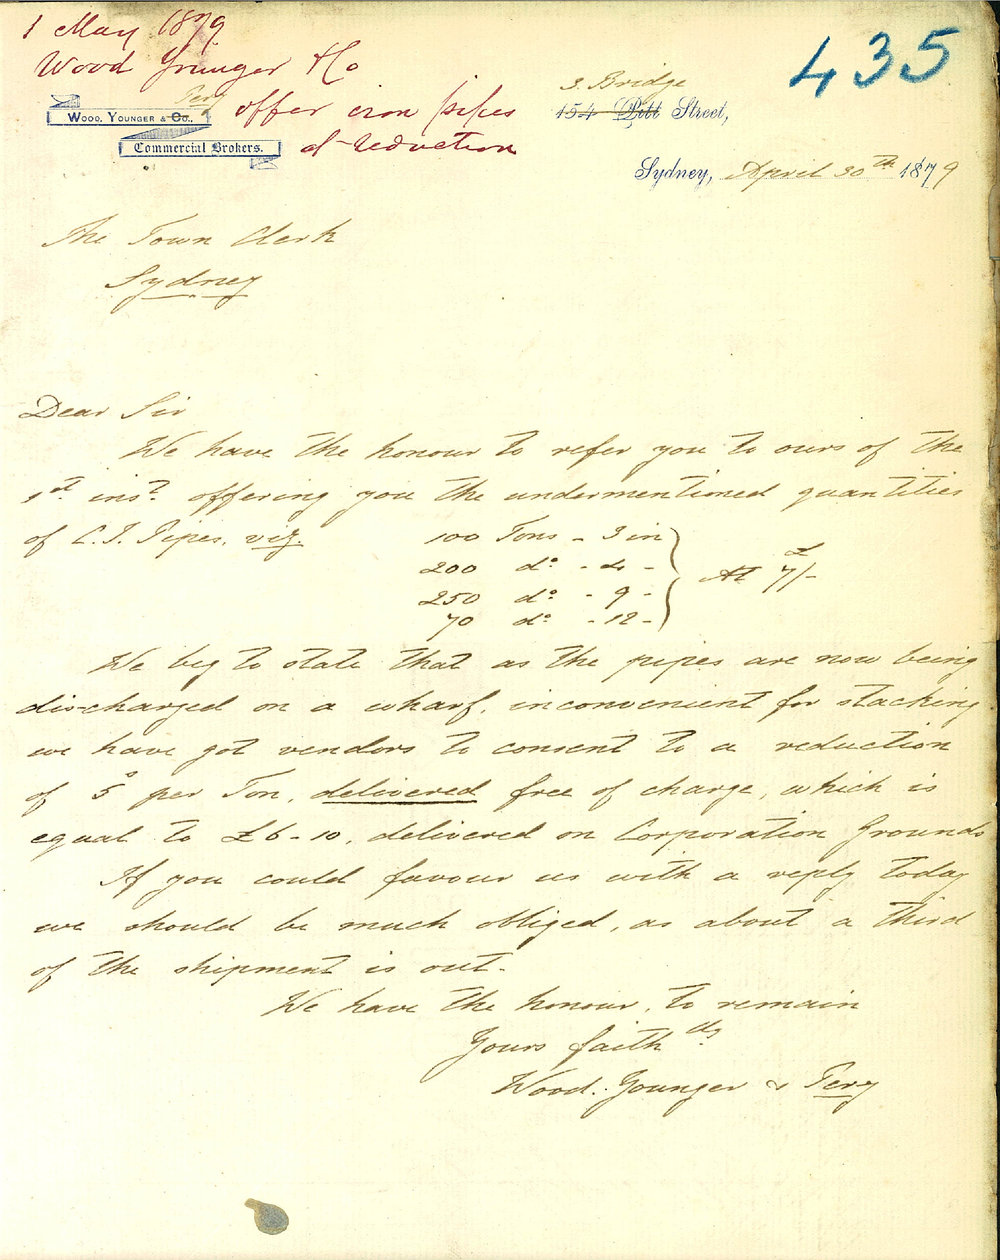 1 May 1879
Wood Younger & Co
offer iron pipes
at reduction
435
WOOD, YOUNGER & Co.,
Pery
Commercial Brokers.
3. Bridge
154 Pitt Street,
Sydney, April 30th 1879
The Town Clerk
Sydney
Dear Sir
We have the honour to refer you to ours of the
1st inst offering you the undermentioned quantities
of C.I. Pipes, viz
100 Tons - 3 in
200 do - 4 -
250 do - 9 -
70 do - 12 -
At £7/-
We beg to state that as the pipes are now being
discharged on a wharf, inconvenient for stacking
we have got vendors to consent to a reduction
of 5s per Ton, delivered free of charge, which is
equal to £6-10, delivered on Corporation Grounds
If you could favour us with a reply today
we should be much obliged, as about a third
of the shipment is out.
We have the honour, to remain
Yours faithlly
Wood. Younger & Pery